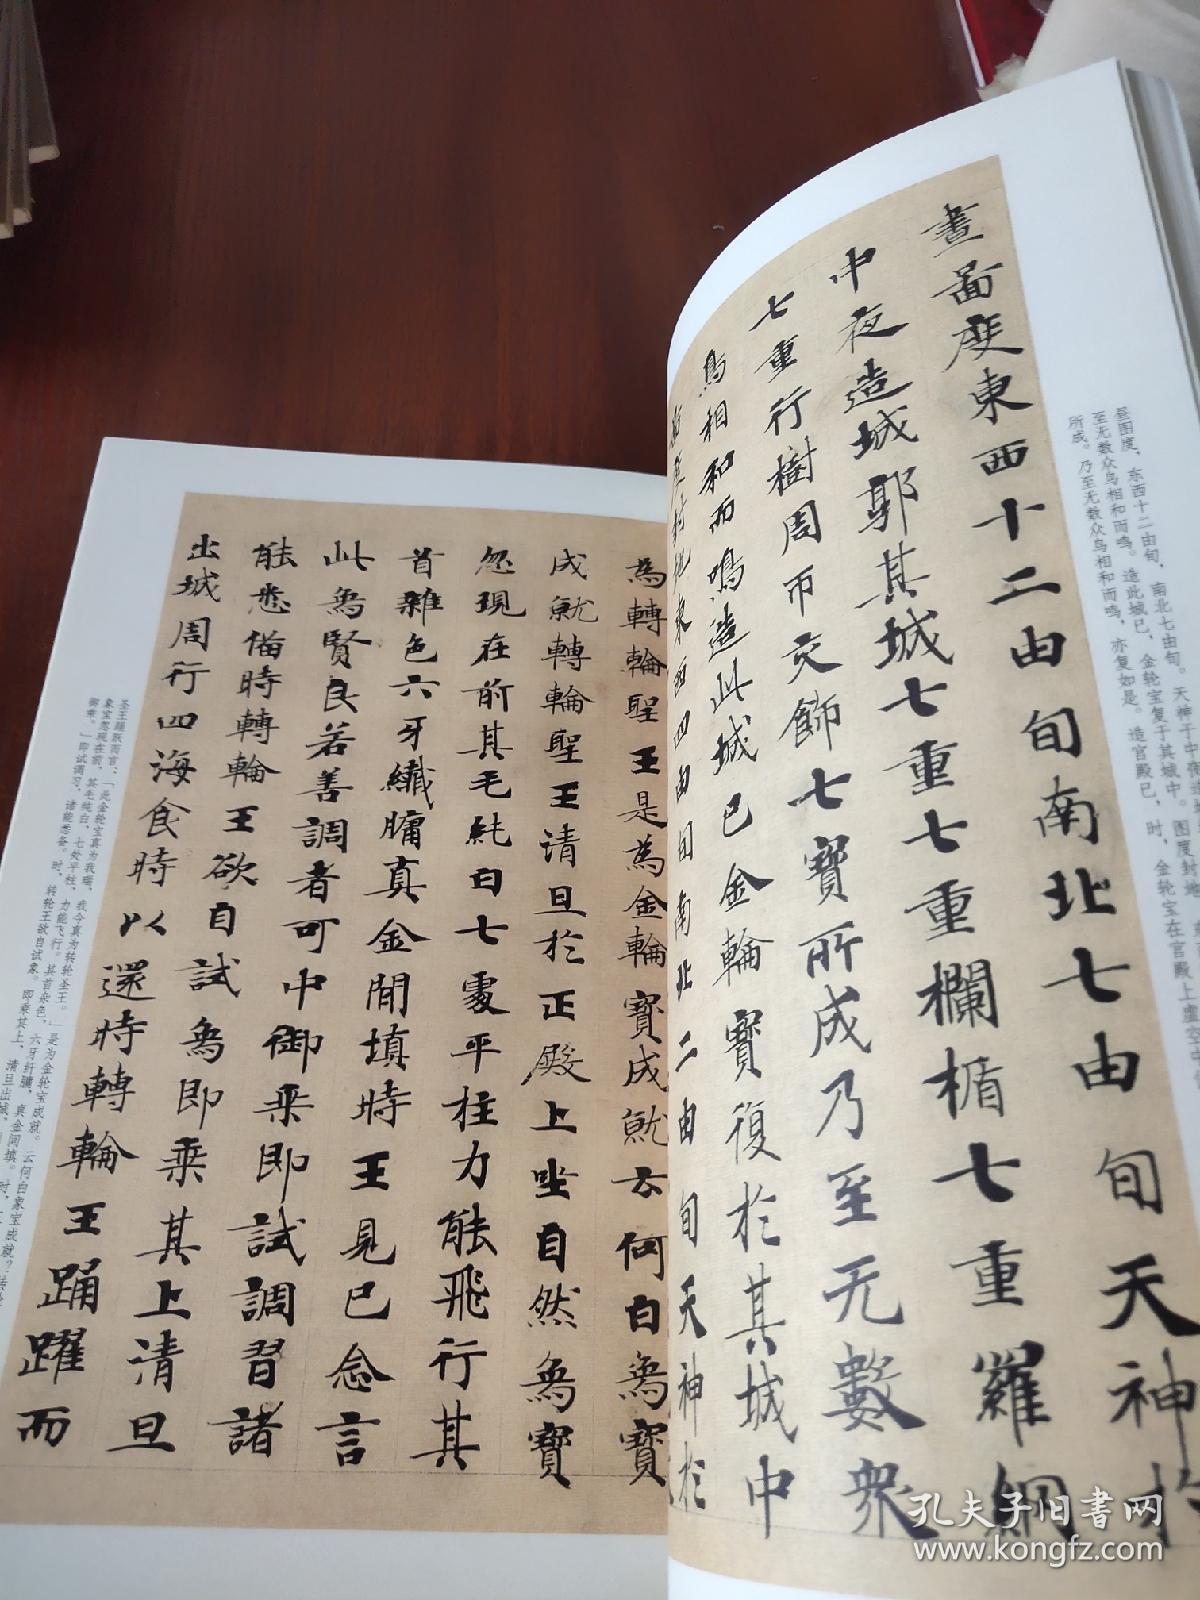 畫啚度東西十二由旬南北七由旬天神於
中夜造城郭其城七重七重欄楯七重羅網
七重行樹周帀交飾七寶所成乃至无數衆
鳥相和而鳴造此城已金輪寶復於其城中
東西四由旬南北二由旬天神於
昼图度，东西十二由旬，南北七由旬。天神于中夜造
至无数众鸟相和而鸣。造此城已，金轮宝复于其城中。图度封地
所成。乃至无数众鸟相和而鸣，亦复如是。造宫殿已，时，金轮宝在宫殿上虚空中
為轉輪聖王是為金輪寶成就云何白象寶
成就轉輪聖王清旦於正殿上坐自然象寶
忽現在前其毛純白七處平柱力能飛行其
首雜色六牙纖𦟛真金間填時王見已念言
此象賢良若善調者可中御乘即試調習諸
能悉俻時轉輪王欲自試象即乘其上清旦
出城周行四海食時以還時轉輪王踊躍而
圣王踊跃而言：「此金轮宝真为我瑞，我今真为转轮圣王。」是为金轮宝成就。云何白象宝成就？转轮
象宝忽现在前，其毛纯白，七处平柱，力能飞行。其首杂色，六牙纤𦟛，真金间填。时，王
御乘。」即试调习，诸能悉备。时，转轮王欲自试象，即乘其上，清旦出城，
孔夫子旧书网
www.kongfz.com